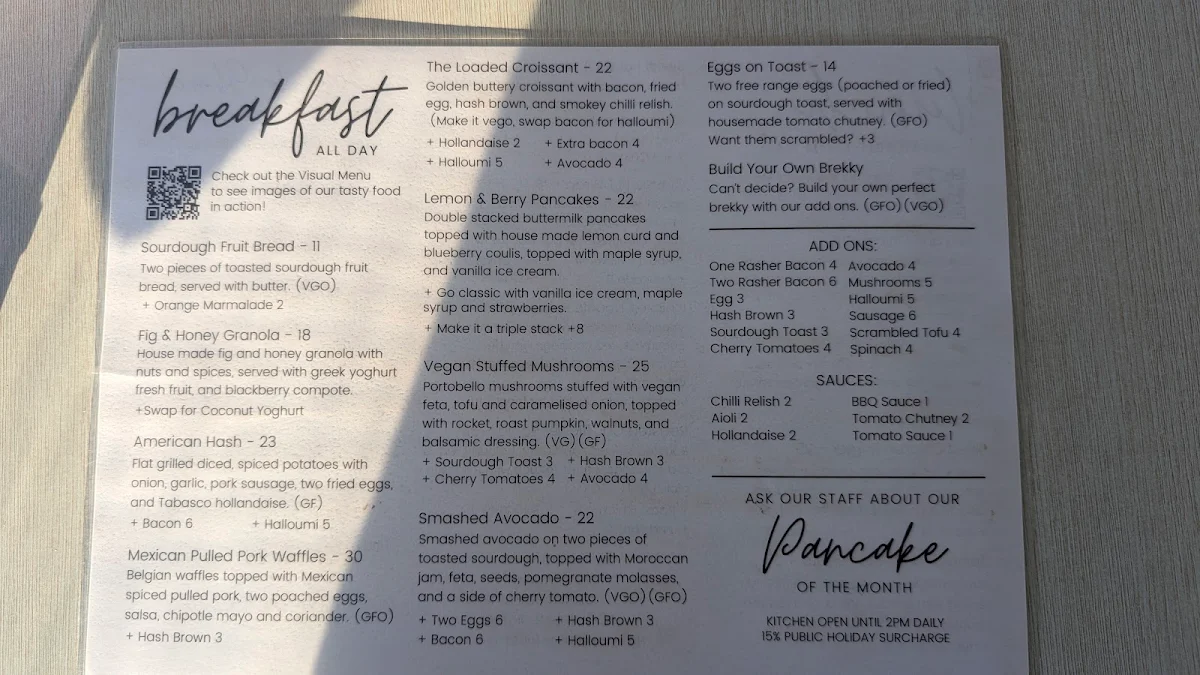 breakfast
ALL DAY
Check out the Visual Menu
to see images of our tasty food
in action!
Sourdough Fruit Bread - 11
Two pieces of toasted sourdough fruit
bread, served with butter. (VGO)
+ Orange Marmalade 2
Fig & Honey Granola - 18
House made fig and honey granola with
nuts and spices, served with greek yoghurt
fresh fruit, and blackberry compote.
+Swap for Coconut Yoghurt
American Hash - 23
Flat grilled diced, spiced potatoes with
onion, garlic, pork sausage, two fried eggs,
and Tabasco hollandaise. (GF)
+ Bacon 6 + Halloumi 5
Mexican Pulled Pork Waffles - 30
Belgian waffles topped with Mexican
spiced pulled pork, two poached eggs,
salsa, chipotle mayo and coriander. (GFO)
+ Hash Brown 3
The Loaded Croissant - 22
Golden buttery croissant with bacon, fried
egg, hash brown, and smokey chilli relish.
(Make it vego, swap bacon for halloumi)
+ Hollandaise 2 + Extra bacon 4
+ Halloumi 5 + Avocado 4
Lemon & Berry Pancakes - 22
Double stacked buttermilk pancakes
topped with house made lemon curd and
blueberry coulis, topped with maple syrup,
and vanilla ice cream.
+ Go classic with vanilla ice cream, maple
syrup and strawberries.
+ Make it a triple stack +8
Vegan Stuffed Mushrooms - 25
Portobello mushrooms stuffed with vegan
feta, tofu and caramelised onion, topped
with rocket, roast pumpkin, walnuts, and
balsamic dressing. (VG)(GF)
+ Sourdough Toast 3 + Hash Brown 3
+ Cherry Tomatoes 4 + Avocado 4
Smashed Avocado - 22
Smashed avocado on two pieces of
toasted sourdough, topped with Moroccan
jam, feta, seeds, pomegranate molasses,
and a side of cherry tomato. (VGO)(GFO)
+ Two Eggs 6 + Hash Brown 3
+ Bacon 6 + Halloumi 5
Eggs on Toast - 14
Two free range eggs (poached or fried)
on sourdough toast, served with
housemade tomato chutney. (GFO)
Want them scrambled? +3
Build Your Own Brekky
Can't decide? Build your own perfect
brekky with our add ons. (GFO)(VGO)
ADD ONS:
One Rasher Bacon 4 Avocado 4
Two Rasher Bacon 6 Mushrooms 5
Egg 3 Halloumi 5
Hash Brown 3 Sausage 6
Sourdough Toast 3 Scrambled Tofu 4
Cherry Tomatoes 4 Spinach 4
SAUCES:
Chilli Relish 2 BBQ Sauce 1
Aioli 2 Tomato Chutney 2
Hollandaise 2 Tomato Sauce 1
ASK OUR STAFF ABOUT OUR
Pancake
OF THE MONTH
KITCHEN OPEN UNTIL 2PM DAILY
15% PUBLIC HOLIDAY SURCHARGE